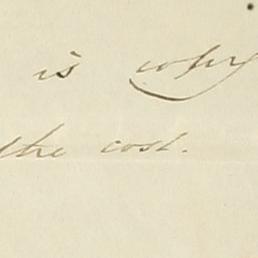 is
the cost.